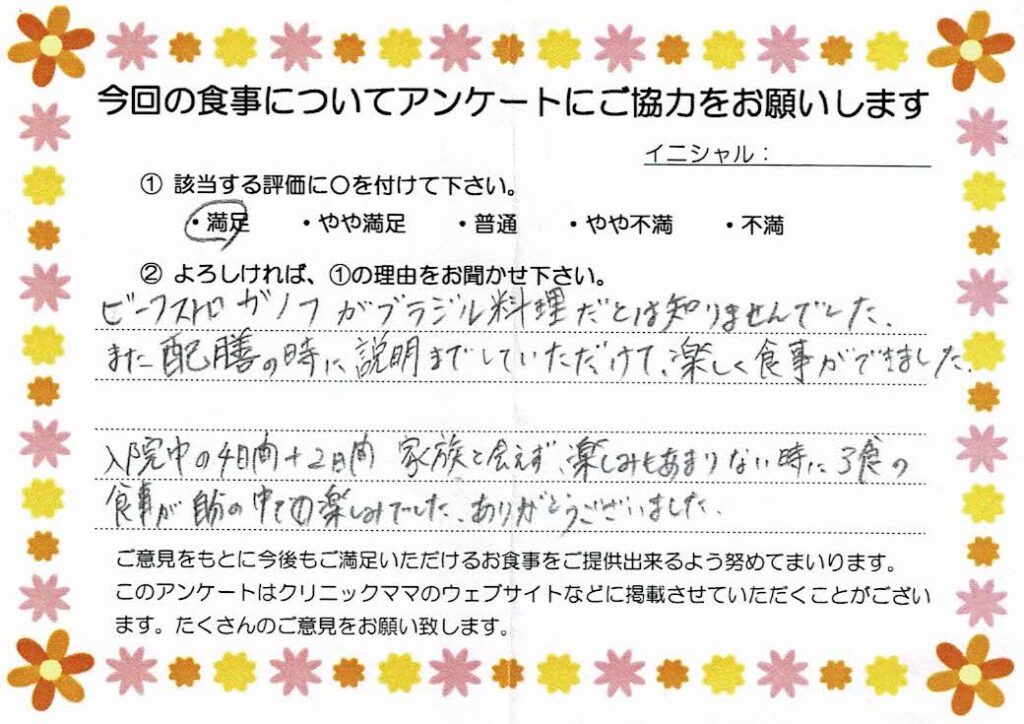 今回の食事についてアンケートにご協力をお願いします
イニシャル：
① 該当する評価に〇を付けて下さい。
・満足 ・やや満足 ・普通 ・やや不満 ・不満
② よろしければ、①の理由をお聞かせ下さい。
ビーフストロガノフがブラジル料理だとは知りませんでした。
また配膳の時に説明までしていただけて、楽しく食事ができました。
入院中の4日間+2日間 家族と会えず、楽しみもあまりない時に3食の
食事が自分の中での楽しみでした。ありがとうございました。
ご意見をもとに今後もご満足いただけるお食事をご提供出来るよう努めてまいります。
このアンケートはクリニックママのウェブサイトなどに掲載させていただくことがござい
ます。たくさんのご意見をお願い致します。